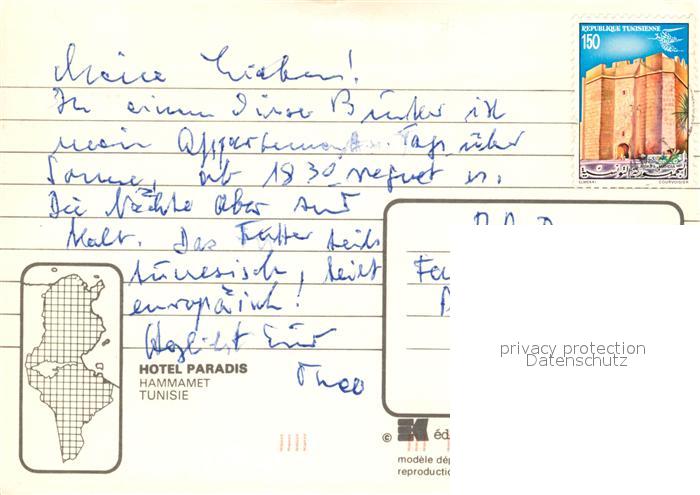 Meine Lieben!
In einem dieser Bunker ist
mein Appartement. Tags über
Sonne, ab 18 30 regnet es.
Die Nächte aber sind
kalt. Das Futter teils
tunesisch, teils
europäisch!
Herzlichst Euer
Theo
REPUBLIQUE TUNISIENNE
150
الجمهورية التونسية
ELMEKKI
COURVOISIER
HOTEL PARADIS
HAMMAMET
TUNISIE
privacy protection
Datenschutz
© EK éd
modèle dép
reproductio